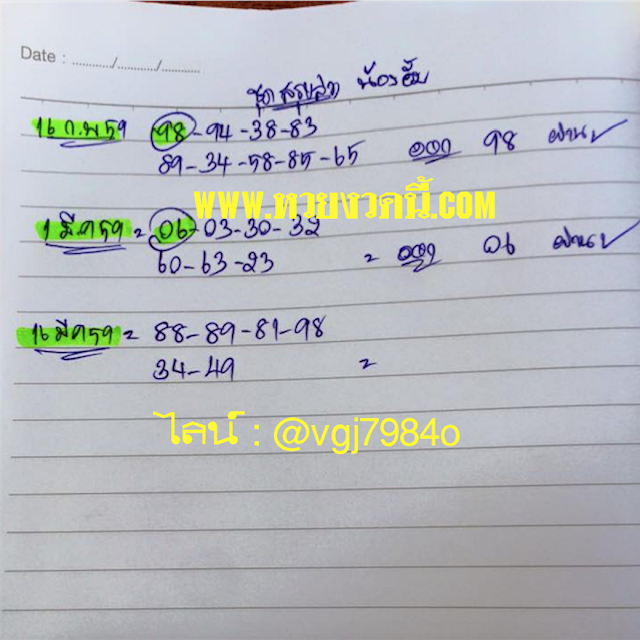 Date : ........../........../..........
ชุดสรุปสุด น้องอั้ม
16 ก.พ 59 98-94-38-83
89-34-58-85-65 ออก 98 ผ่าน ✓
www.หวยงวดนี้.com
1 มีค 59 = 06-03-30-32
60-63-23 = ออก 06 ผ่าน ✓
16 มีค 59 = 88-89-81-98
34-49 =
ไลน์ : @vgj7984o